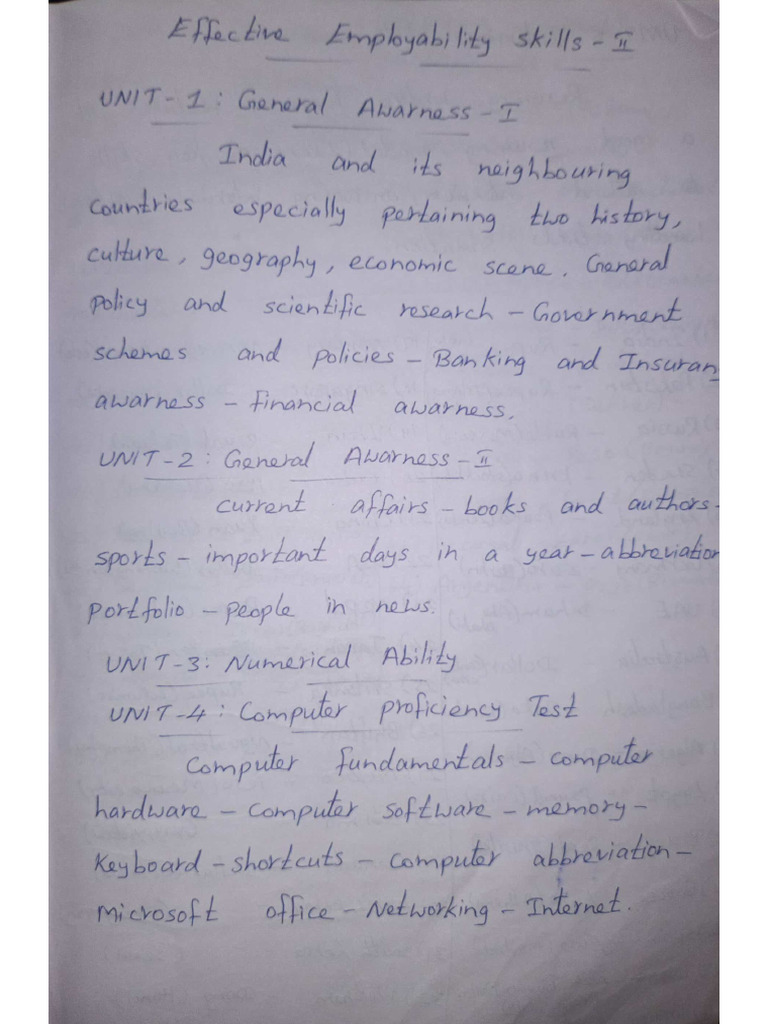 Effective Employability skills - II
UNIT - 1 : General Awarness - I
India and its neighbouring
countries especially pertaining two history,
culture, geography, economic scene. General
policy and scientific research - Government
schemes and policies - Banking and Insuran
awarness - financial awarness.
UNIT - 2 : General Awarness - II
current affairs - books and authors -
sports - important days in a year - abbreviation
portfolio - people in news.
UNIT - 3 : Numerical Ability
UNIT - 4 : Computer proficiency Test
Computer fundamentals - computer
hardware - computer software - memory -
Keyboard - shortcuts - computer abbreviation -
Microsoft office - Networking - Internet.